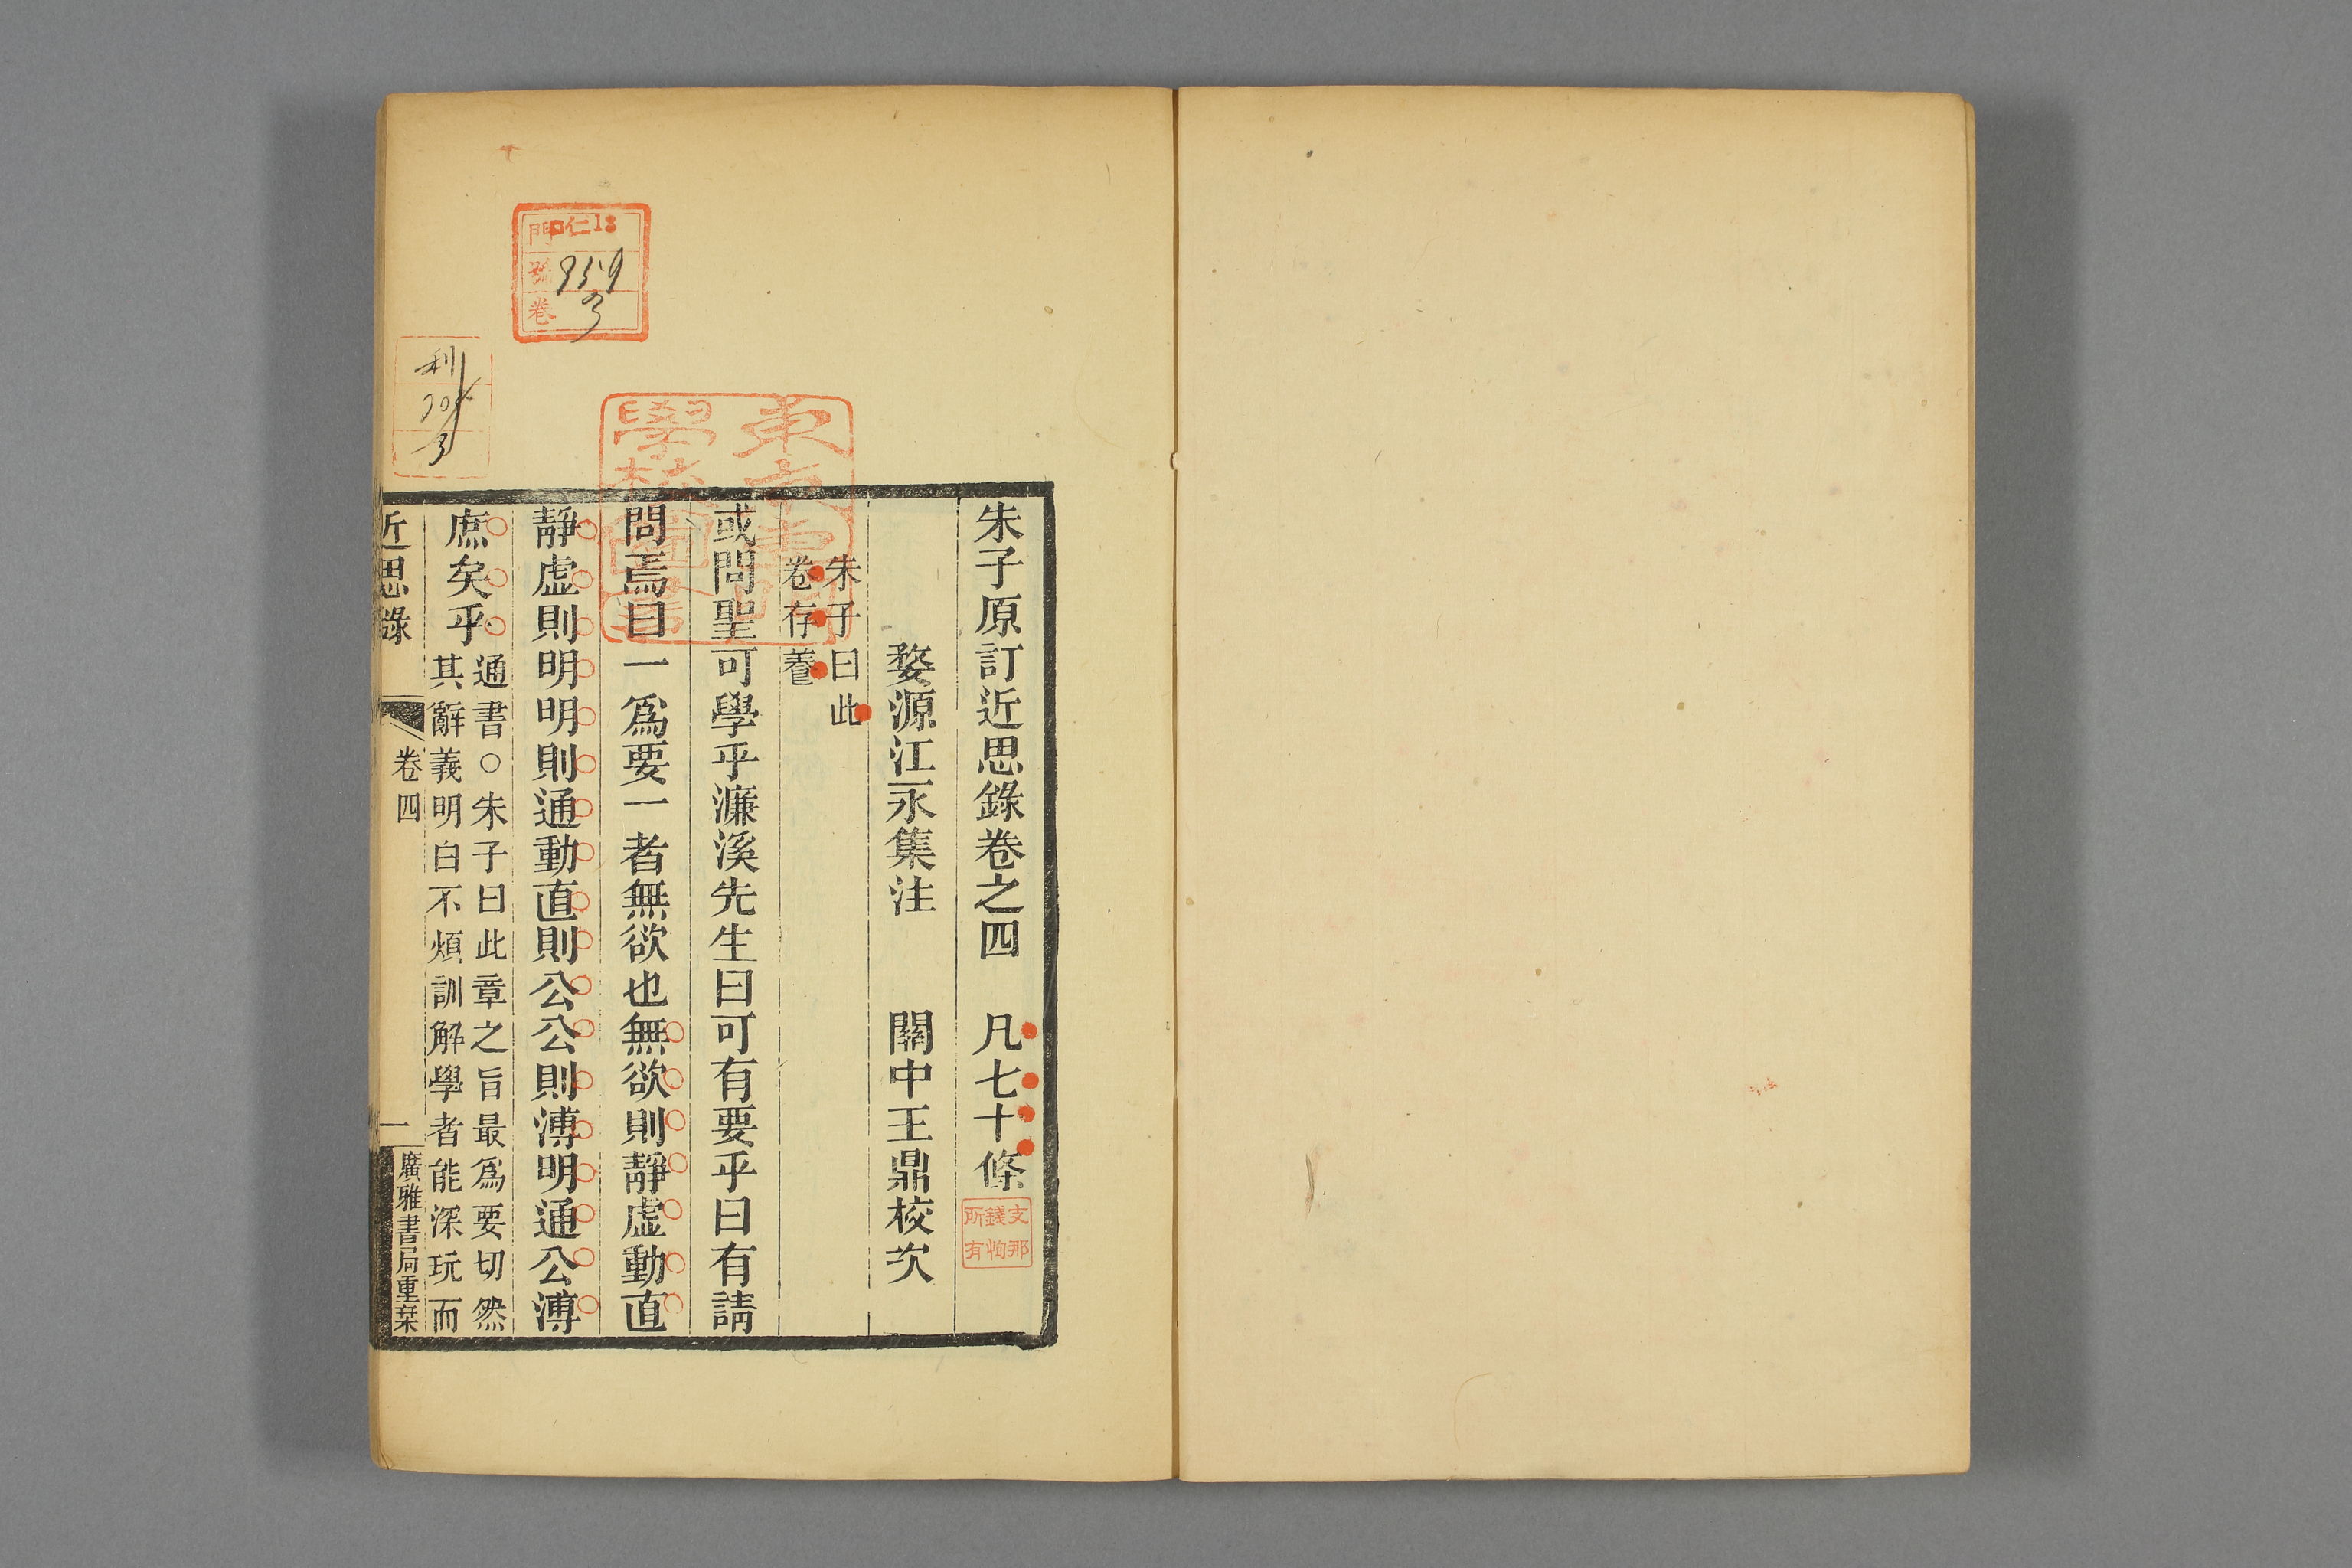 朱子原訂近思錄卷之四　凡七十條
婺源江永集注　關中王鼎校次
朱子曰此
卷存養
或問聖可學乎濂溪先生曰可有要乎曰有請
問焉曰一爲要一者無欲也無欲則靜虛動直
靜虛則明明則通動直則公公則溥明通公溥
庶矣乎
通書○朱子曰此章之旨最爲要切然
其辭義明白不煩訓解學者能深玩而
近思錄
卷四
一
廣雅書局重栞
支那
錢恂
所有
門
號
卷
仁
959
3
利
3